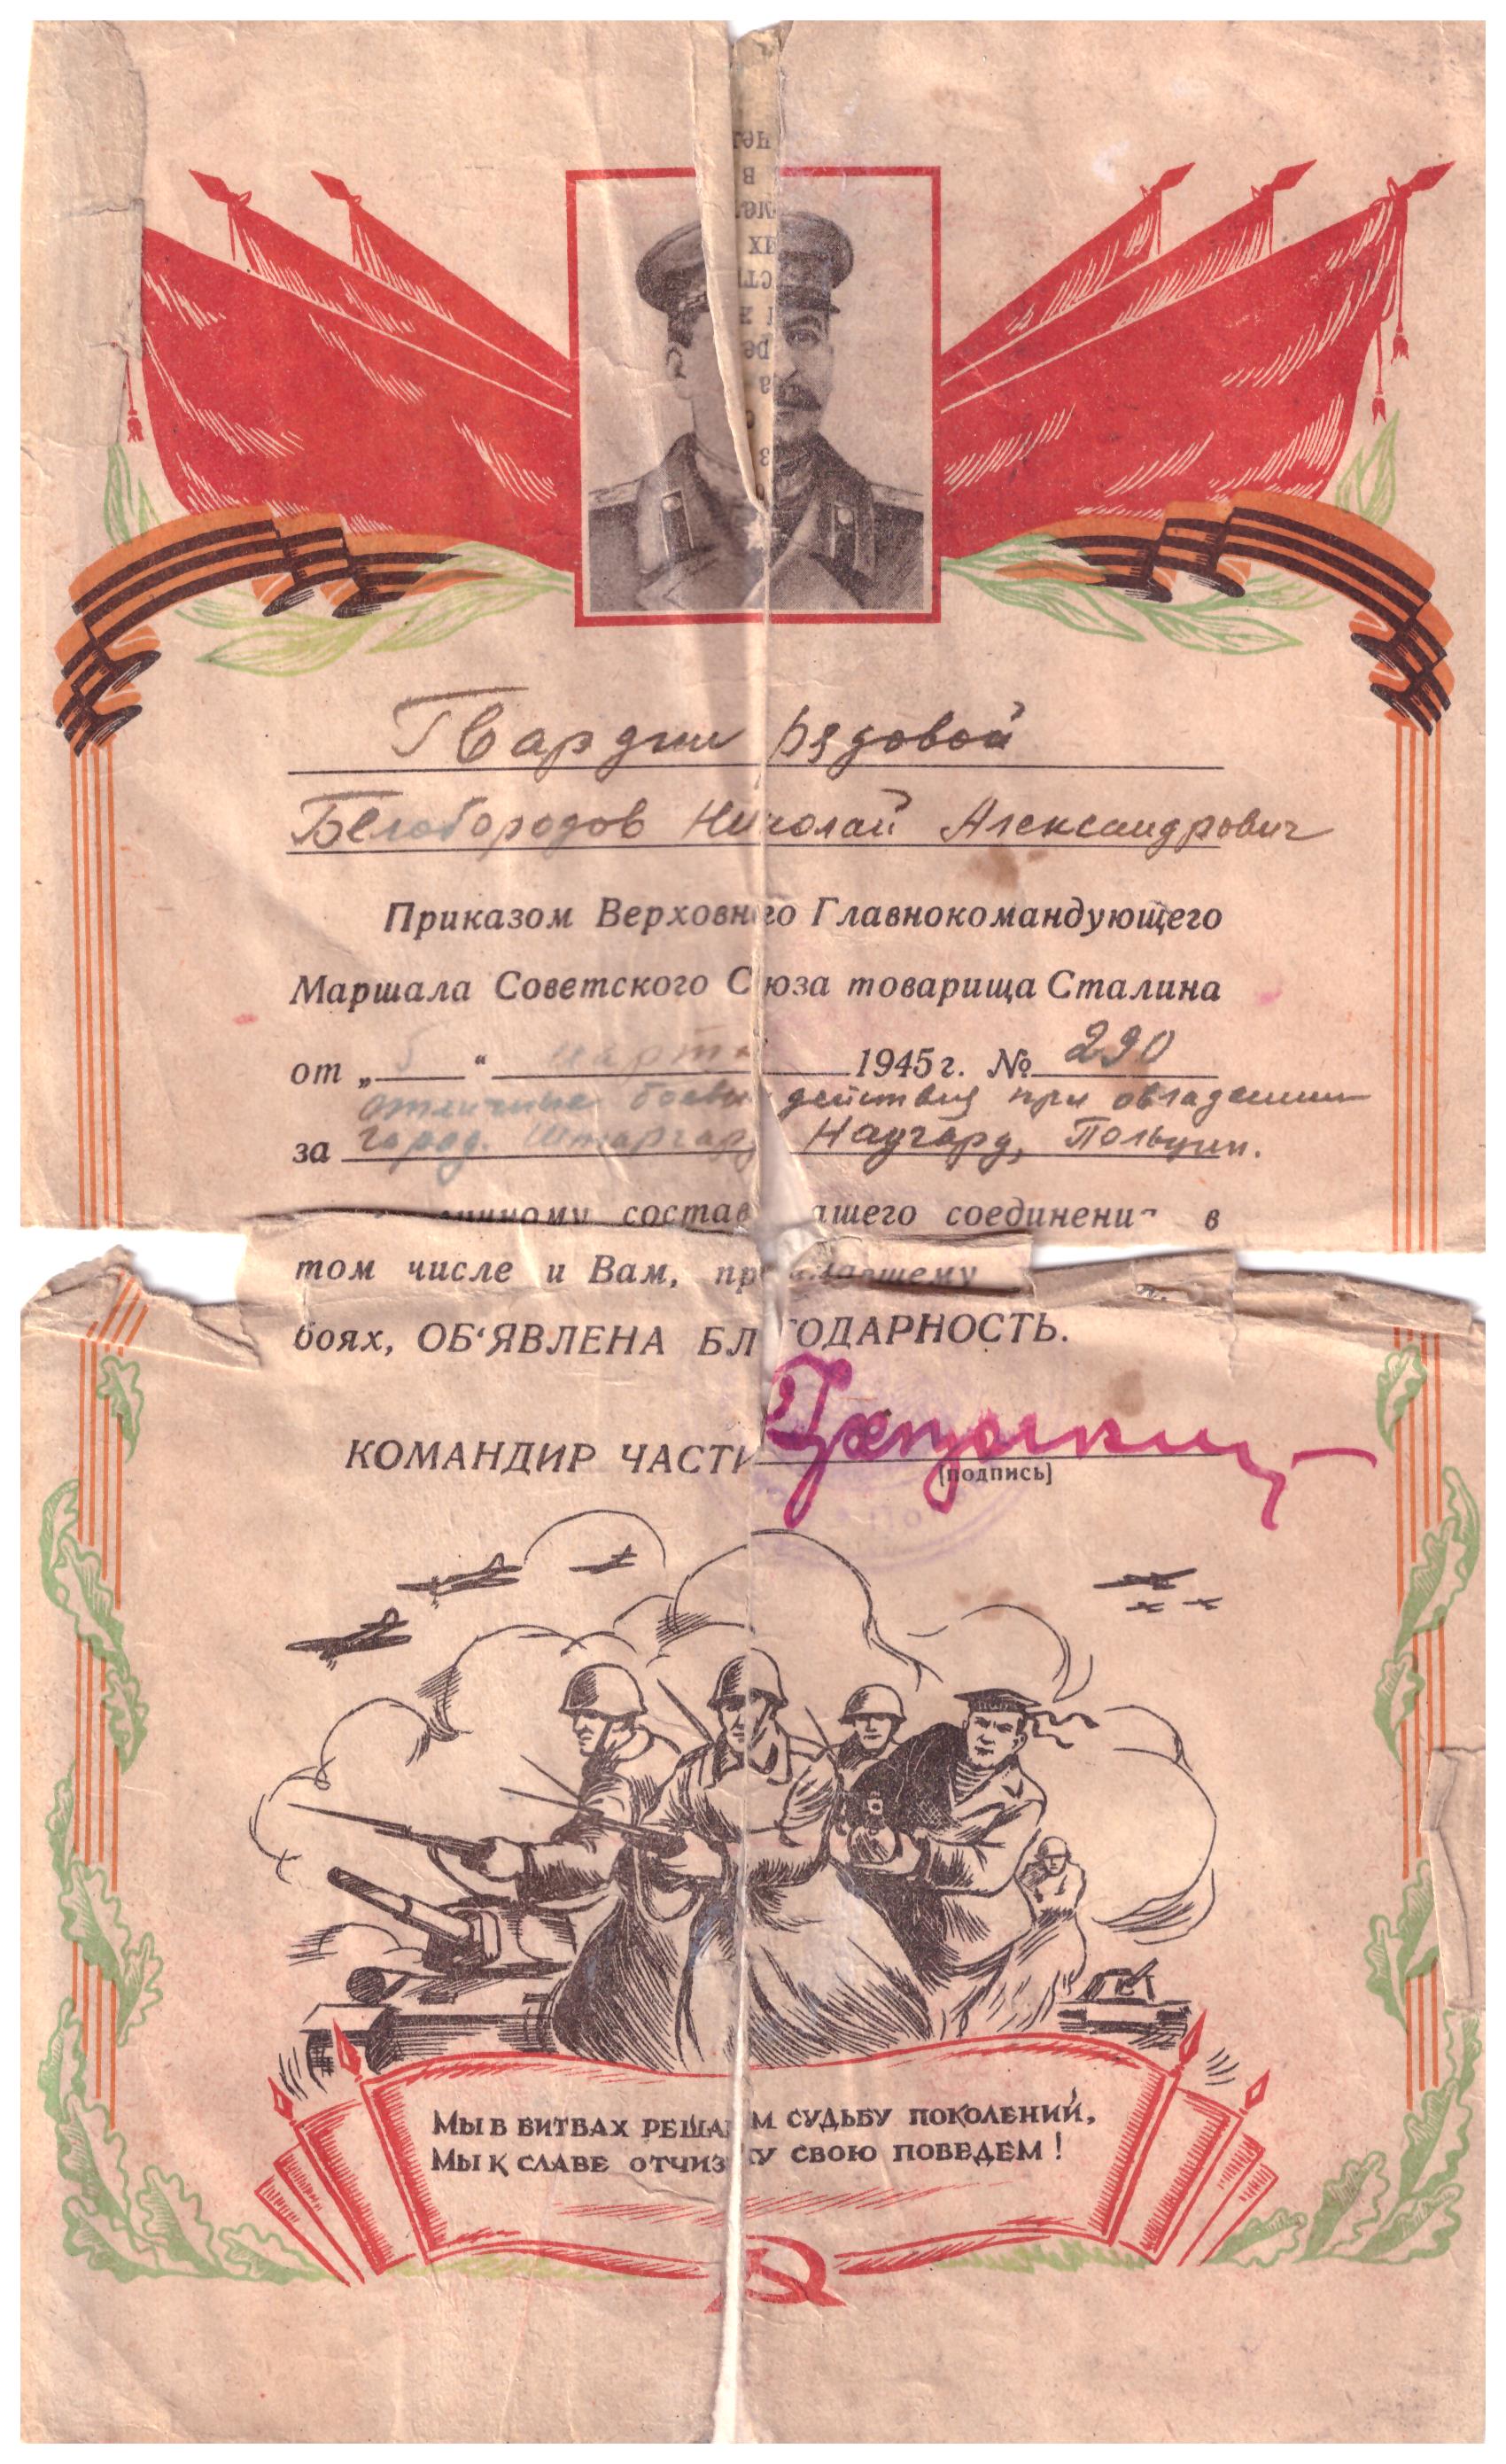 Гвардии рядовой
Белобородов Николай Александрович
Приказом Верховного Главнокомандующего
Маршала Советского Союза товарища Сталина
от „ 5 “ марта 1945 г. № 290
отличные боевые действия при овладении
за город. Штаргард, Наугард, Польцин.
личному составу вашего соединения в
том числе и Вам, принимавшему
боях, ОБ‘ЯВЛЕНА БЛАГОДАРНОСТЬ.
КОМАНДИР ЧАСТИ
[подпись]
Мы в битвах решаем судьбу поколений,
Мы к славе отчизну свою поведем!